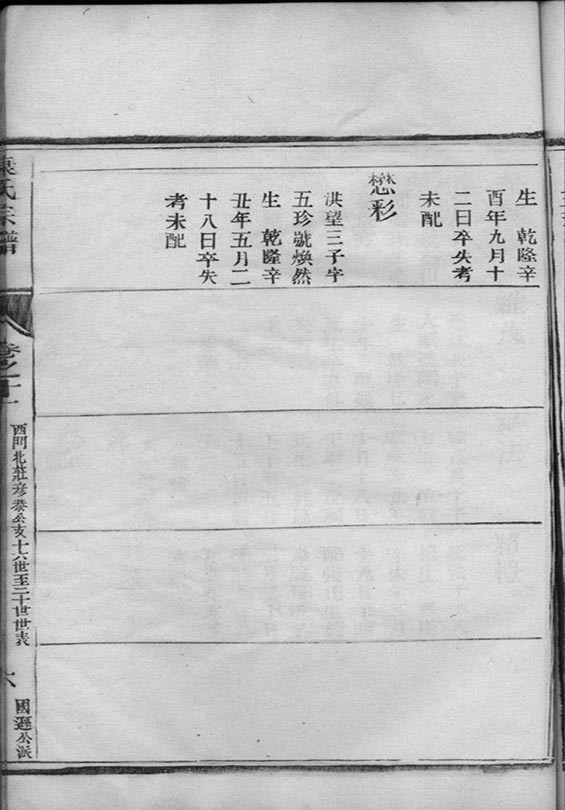 生　乾隆辛
酉年九月十
二日卒失考
未配
懋彩
洪望三子字
五珍號煥然
生　乾隆辛
丑年五月二
十八日卒失
考未配
陳氏宗譜
卷之十
西門北莊彥泰公支十六世至二十世世表
六
國遷公派